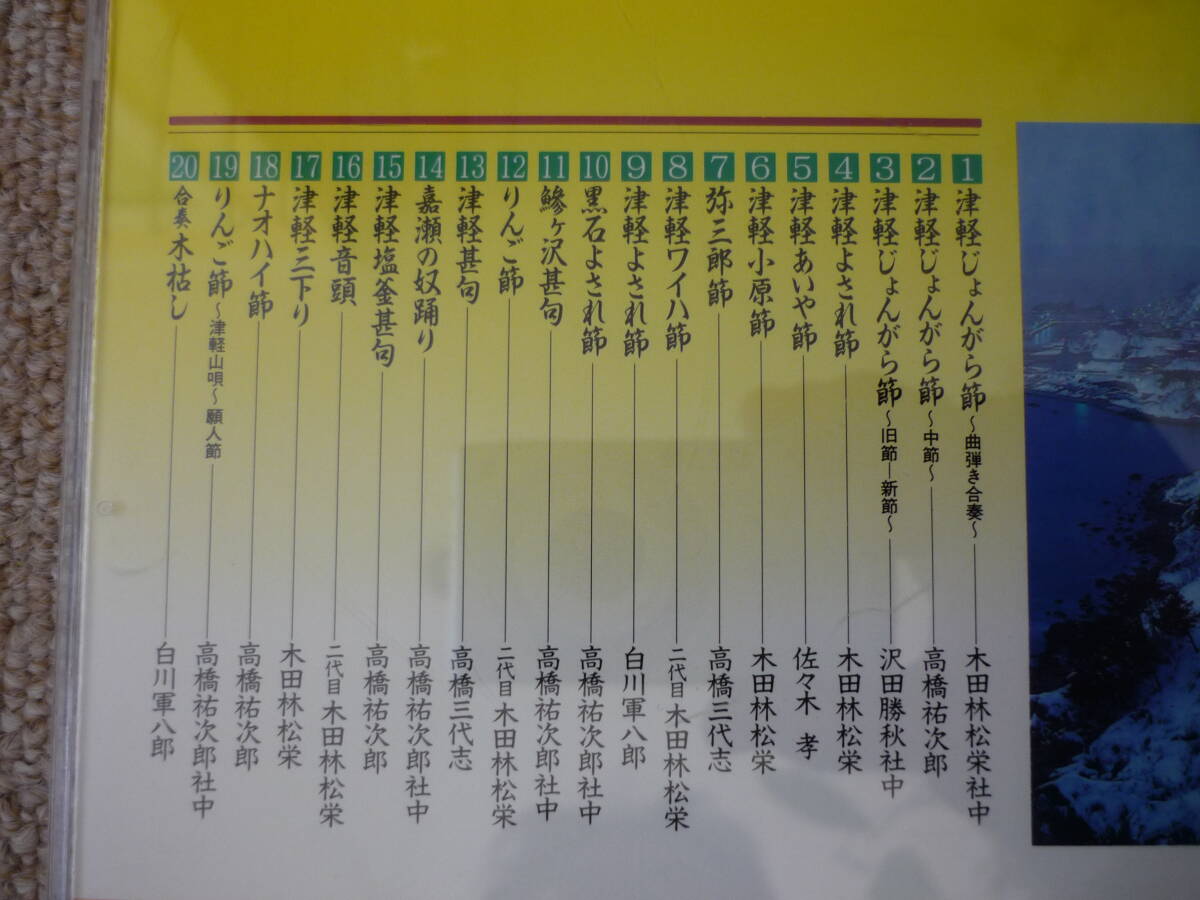 1 津軽じょんがら節 〜曲弾き合奏〜 木田林松栄社中
2 津軽じょんがら節 〜中節〜 高橋祐次郎
3 津軽じょんがら節 〜旧節―新節〜 沢田勝秋社中
4 津軽よされ節 木田林松栄
5 津軽あいや節 佐々木 孝
6 津軽小原節 木田林松栄
7 弥三郎節 高橋三代志
8 津軽ワイハ節 二代目 木田林松栄
9 津軽よされ節 白川軍八郎
10 黒石よされ節 高橋祐次郎社中
11 鰺ヶ沢甚句 高橋祐次郎社中
12 りんご節 二代目 木田林松栄
13 津軽甚句 高橋三代志
14 嘉瀬の奴踊り 高橋祐次郎社中
15 津軽塩釜甚句 高橋祐次郎
16 津軽音頭 二代目 木田林松栄
17 津軽三下り 木田林松栄
18 ナオハイ節 高橋祐次郎
19 りんご節 〜津軽山唄〜願人節 高橋祐次郎社中
20 合奏 木枯し 白川軍八郎